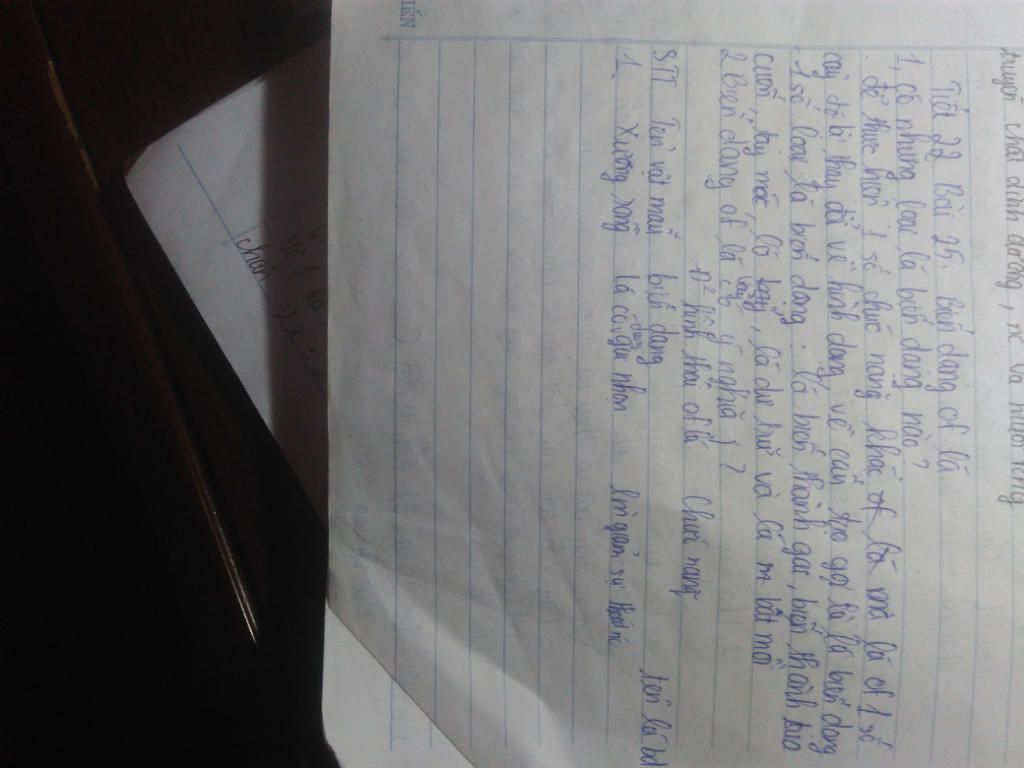 chất dinh dưỡng, nc và muối
Tiết 22 Bài 25. Biến dạng of lá
1, có những loại lá biến dạng nào?
. để thực hiện 1 số chức năng khác of lá mà lá of 1 số
cây đã bị thay đổi về hình dạng về cấu tạo gọi là lá biến dạng
. 1 số loại lá biến dạng. Lá biến thành gai, biến thành tua
cuốn, tay móc, lá vảy, lá dự trữ và lá bắt mồi
2 biến dạng of lá có ý nghĩa j?
STT Tên vật mẫu biến dạng hình thái of lá Chức năng tên lá bd
1 Xương rồng lá có dạng gai nhọn làm giảm sự thoát nc
chiếu =>
IẾN